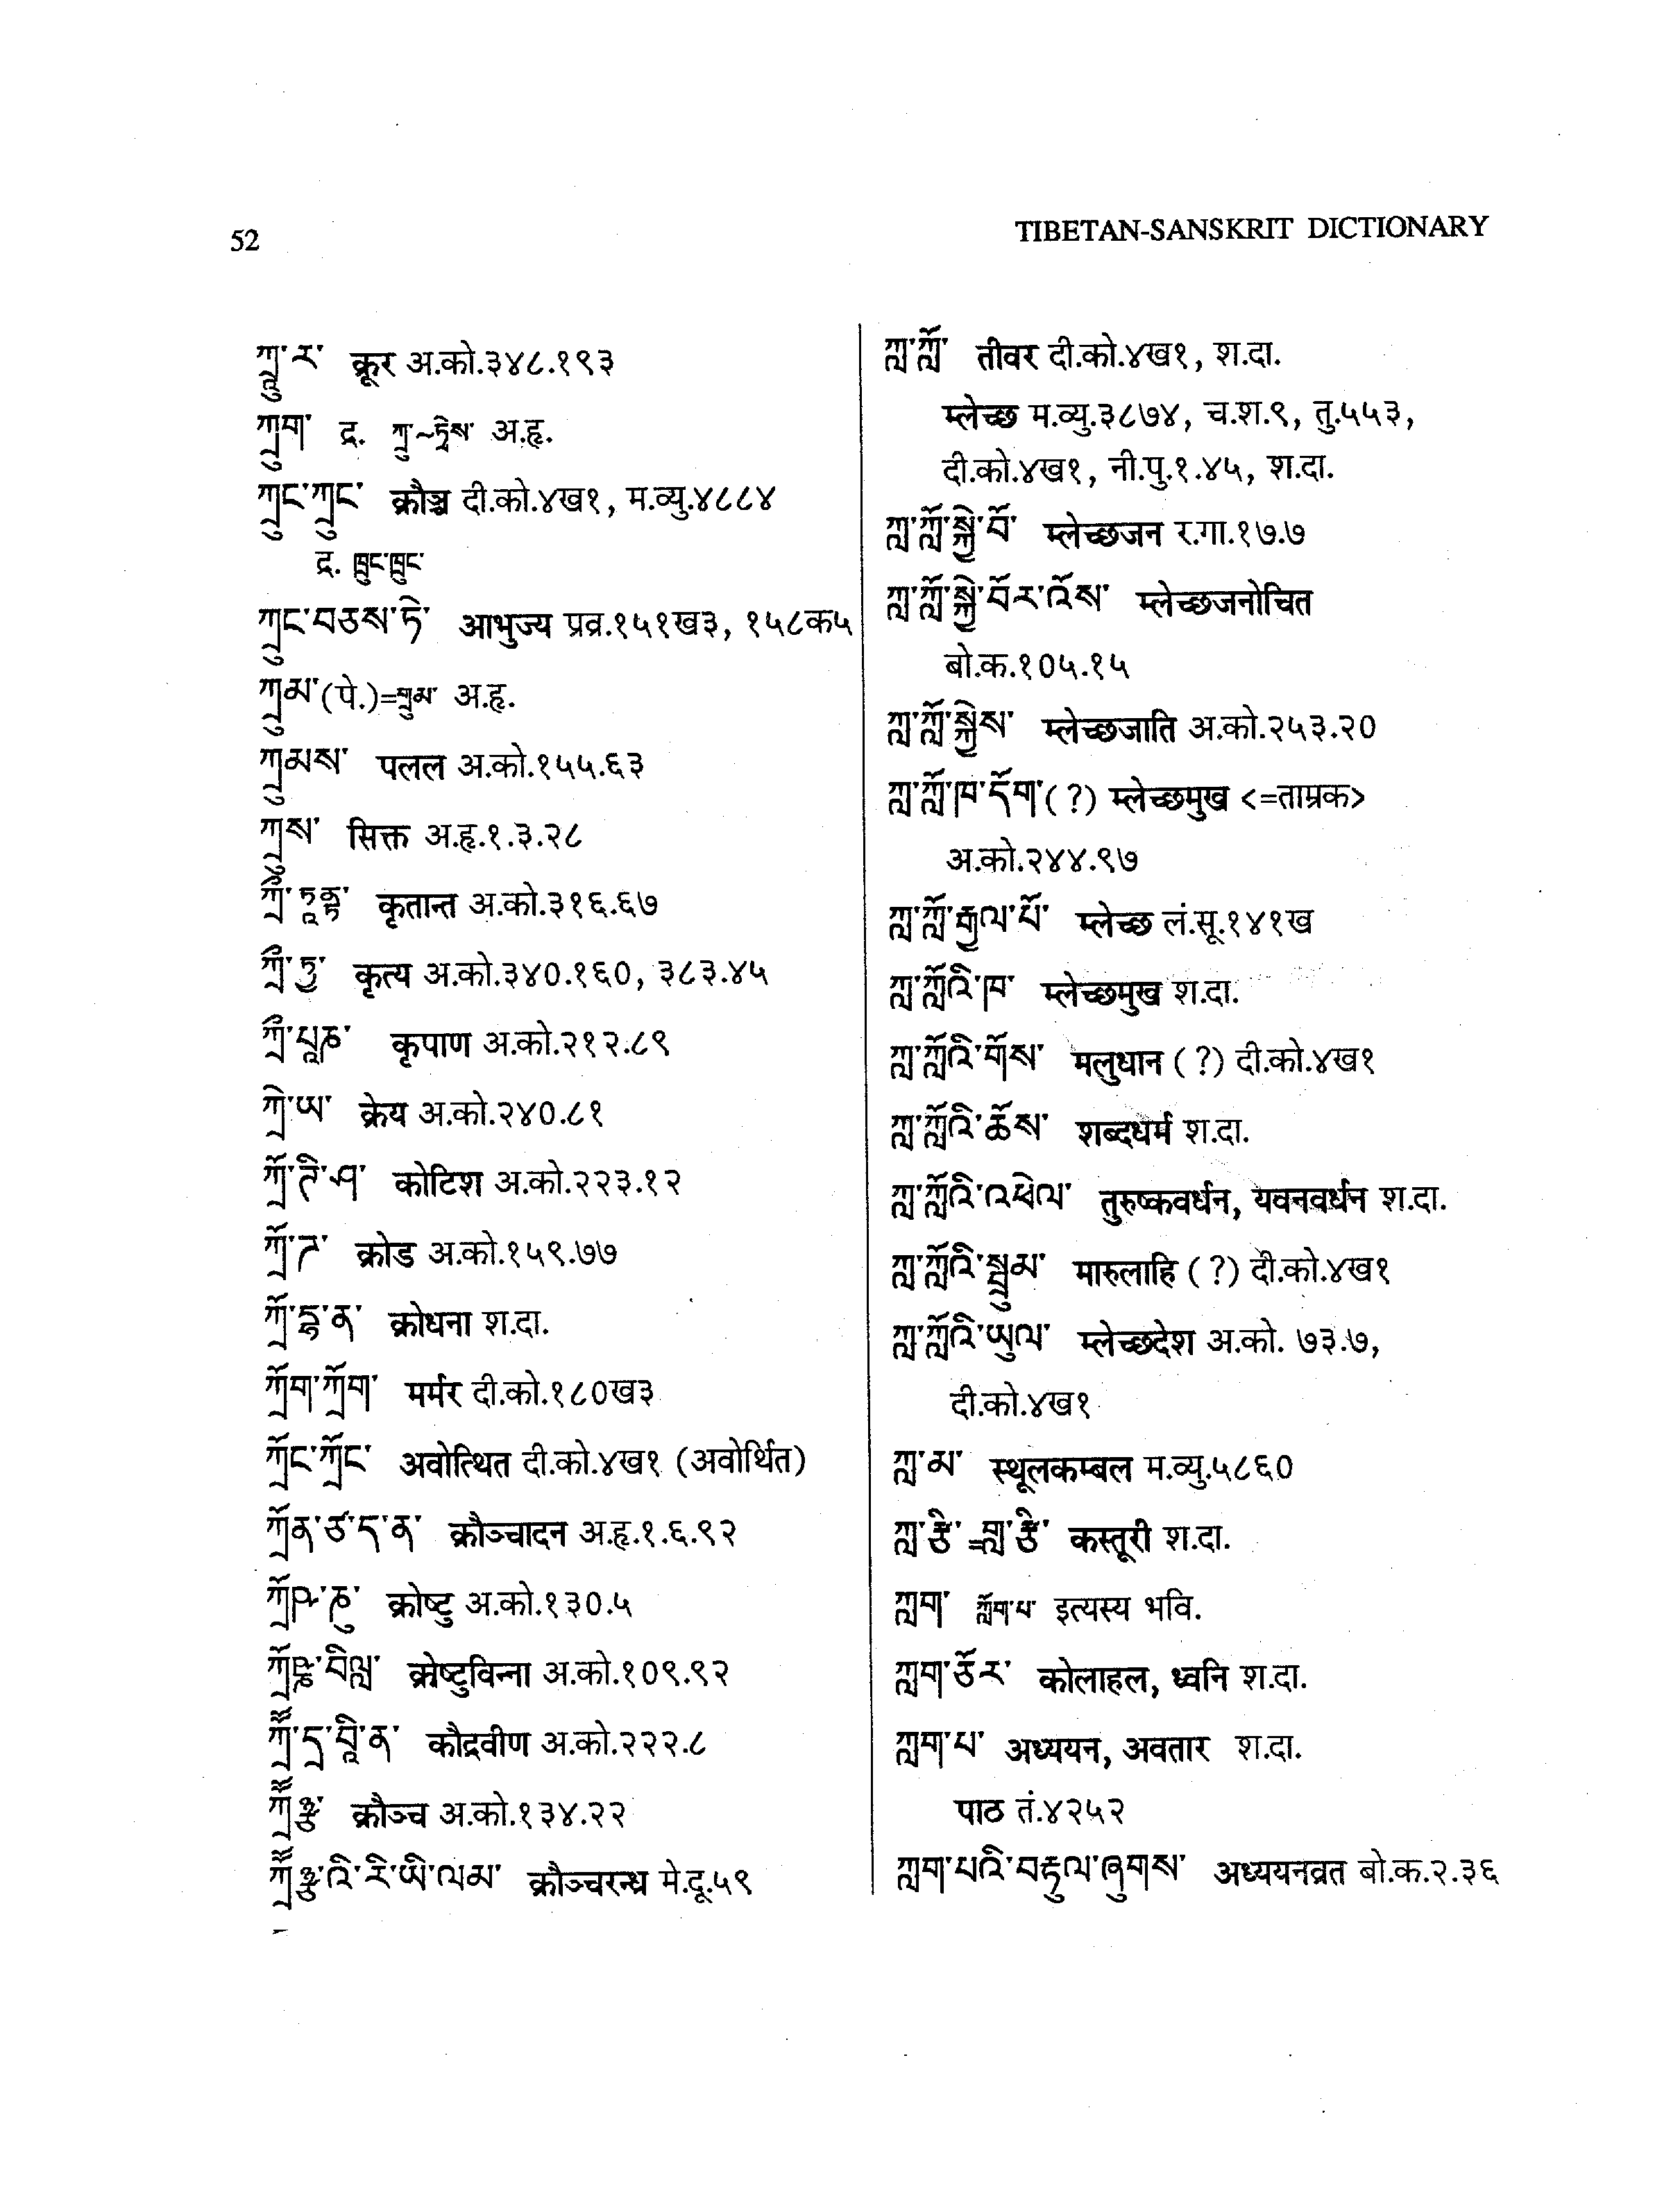 52
TIBETAN-SANSKRIT DICTIONARY
ཀྲཱུ་ར་ क्रूर अ.को.३४८.१९३
ཀྲུག་ द्र. ཀྲུ~ཏྲིས་ अ.हृ.
ཀྲུང་ཀྲུང་ क्रौञ्च दी.को.४ख१, म.व्यु.४८८४
द्र. ཁྲུང་ཁྲུང་
ཀྲུང་བཅས་ཏེ་ आभुज्य प्रव्र.१५१ख३, १५८क५
ཀྲུམ་(पे.)=གྲུམ་ अ.हृ.
ཀྲུམས་ पलल अ.को.१५५.६३
ཀྲུས་ सिक्त अ.हृ.१.३.२८
ཀྲྀ་ཏཱནྟ་ कृतान्त अ.को.३१६.६७
ཀྲྀ་ཏྱ་ कृत्य अ.को.३४०.१६०, ३८३.४५
ཀྲྀ་པཱཎ་ कृपाण अ.को.२१२.८९
ཀྲེ་ཡ་ क्रेय अ.को.२४०.८१
ཀྲོ་ཊི་ཤ་ कोटिश अ.को.२२३.१२
ཀྲོ་ཌ་ क्रोड अ.को.१५९.७७
ཀྲོ་དྷ་ན་ क्रोधना श.दा.
ཀྲོག་ཀྲོག་ मर्मर दी.को.१८०ख३
ཀྲོང་ཀྲོང་ अवोत्थित दी.को.४ख१ (अवोर्थित)
ཀྲོན་ཙ་ད་ན་ क्रौञ्चादन अ.हृ.१.६.९२
ཀྲོཥ་ཊུ་ क्रोष्टु अ.को.१३०.५
क्रोष्टुविन्ना अ.को.१०९.९२
ཀྲཽ་དྲ་བཱི་ན་ कौद्रवीण अ.को.२२२.८
ཀྲཽཉྩ་ क्रौञ्च अ.को.१३४.२२
ཀྲཽཉྩ་འི་རི་ཡི་ལམ་ क्रौञ्चरन्ध्र मे.दू.५९
ཀླ་ཀློ་ तीवर दी.को.४ख१, श.दा.
म्लेच्छ म.व्यु.३८७४, च.श.९, तु.५५३,
दी.को.४ख१, नी.पु.१.४५, श.दा.
ཀླ་ཀློ་སྐྱེ་བོ་ म्लेच्छजन र.गा.१७.७
ཀླ་ཀློ་སྐྱེ་བོར་འོས་ म्लेच्छजनोचित
बो.क.१०५.१५
ཀླ་ཀློ་སྐྱེས་ म्लेच्छजाति अ.को.२५३.२०
ཀླ་ཀློ་ཁ་དོག་(?) म्लेच्छमुख <=ताम्रक>
अ.को.२४४.९७
ཀླ་ཀློ་རྒྱལ་པོ་ म्लेच्छ लं.सू.१४१ख
ཀླ་ཀློའི་ཁ་ म्लेच्छमुख श.दा.
ཀླ་ཀློའི་གོས་ मलुधान (?) दी.को.४ख१
ཀླ་ཀློའི་ཆོས་ शब्दधर्म श.दा.
ཀླ་ཀློའི་འཕེལ་ तुरुष्कवर्धन, यवनवर्धन श.दा.
ཀླ་ཀློའི་སྤྲུམ་ मारुलाहि (?) दी.को.४ख१
ཀླ་ཀློའི་ཡུལ་ म्लेच्छदेश अ.को. ७३.७,
दी.को.४ख१
ཀླ་མ་ स्थूलकम्बल म.व्यु.५८६०
ཀླ་རྩི་=གླ་རྩི་ कस्तूरी श.दा.
ཀླག་ ཀློག་པ་ इत्यस्य भवि.
ཀླག་ཅོར་ कोलाहल, ध्वनि श.दा.
ཀླག་པ་ अध्ययन, अवतार श.दा.
पाठ तं.४२५२
ཀླག་པའི་བརྟུལ་ཞུགས་ अध्ययनव्रत बो.क.२.३६